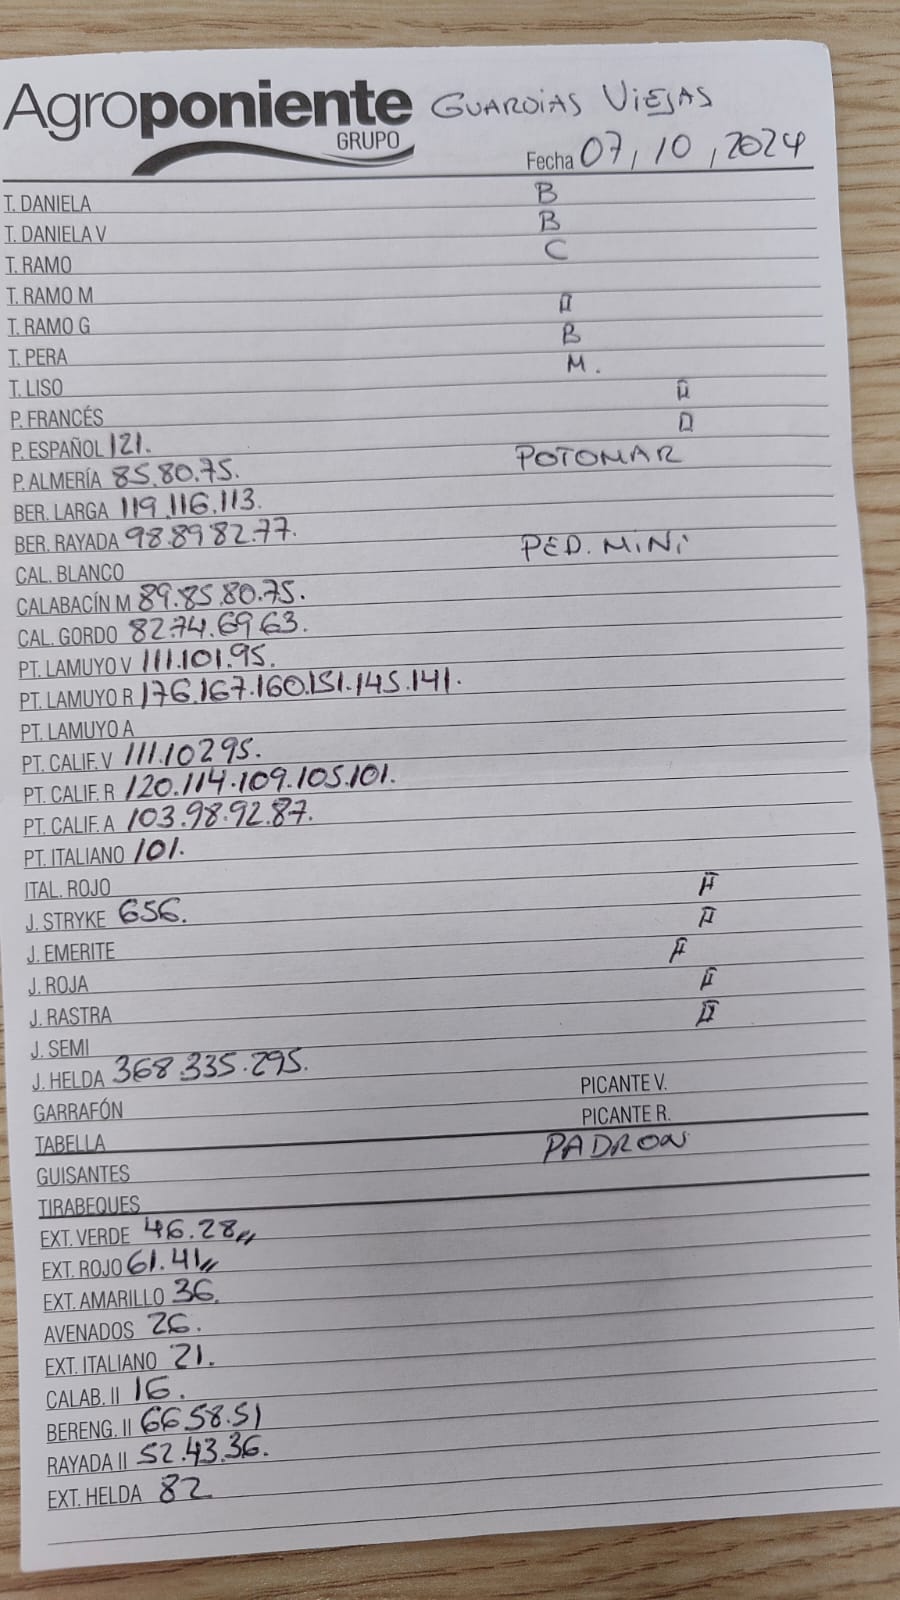 Agroponiente GUARDIAS VIEJAS
GRUPO
Fecha 07, 10, 2024
T. DANIELA B
T. DANIELA V B
T. RAMO C
T. RAMO M
T. RAMO G
T. PERA B
T. LISO M.
P. FRANCÉS
P. ESPAÑOL 121.
P. ALMERÍA 85.80.75. POTOMAR
BER. LARGA 119.116.113.
BER. RAYADA 98.89 82.77.
CAL. BLANCO PED. MINI
CALABACÍN M 89.85.80.75.
CAL. GORDO 82.74.69.63.
PT. LAMUYO V 111.101.95.
PT. LAMUYO R 176.167.160.151.145.141.
PT. LAMUYO A
PT. CALIF. V 111.102 95.
PT. CALIF. R 120.114.109.105.101.
PT. CALIF. A 103.98.92.87.
PT. ITALIANO 101.
ITAL. ROJO
J. STRYKE 656.
J. EMERITE
J. ROJA
J. RASTRA
J. SEMI
J. HELDA 368.335.295.
GARRAFÓN PICANTE V.
TABELLA PICANTE R.
GUISANTES PADRON
TIRABEQUES
EXT. VERDE 46.28,,
EXT. ROJO 61.41,,
EXT. AMARILLO 36.
AVENADOS 26.
EXT. ITALIANO 21.
CALAB. II 16.
BERENG. II 66 58.51
RAYADA II 52.43.36.
EXT. HELDA 82